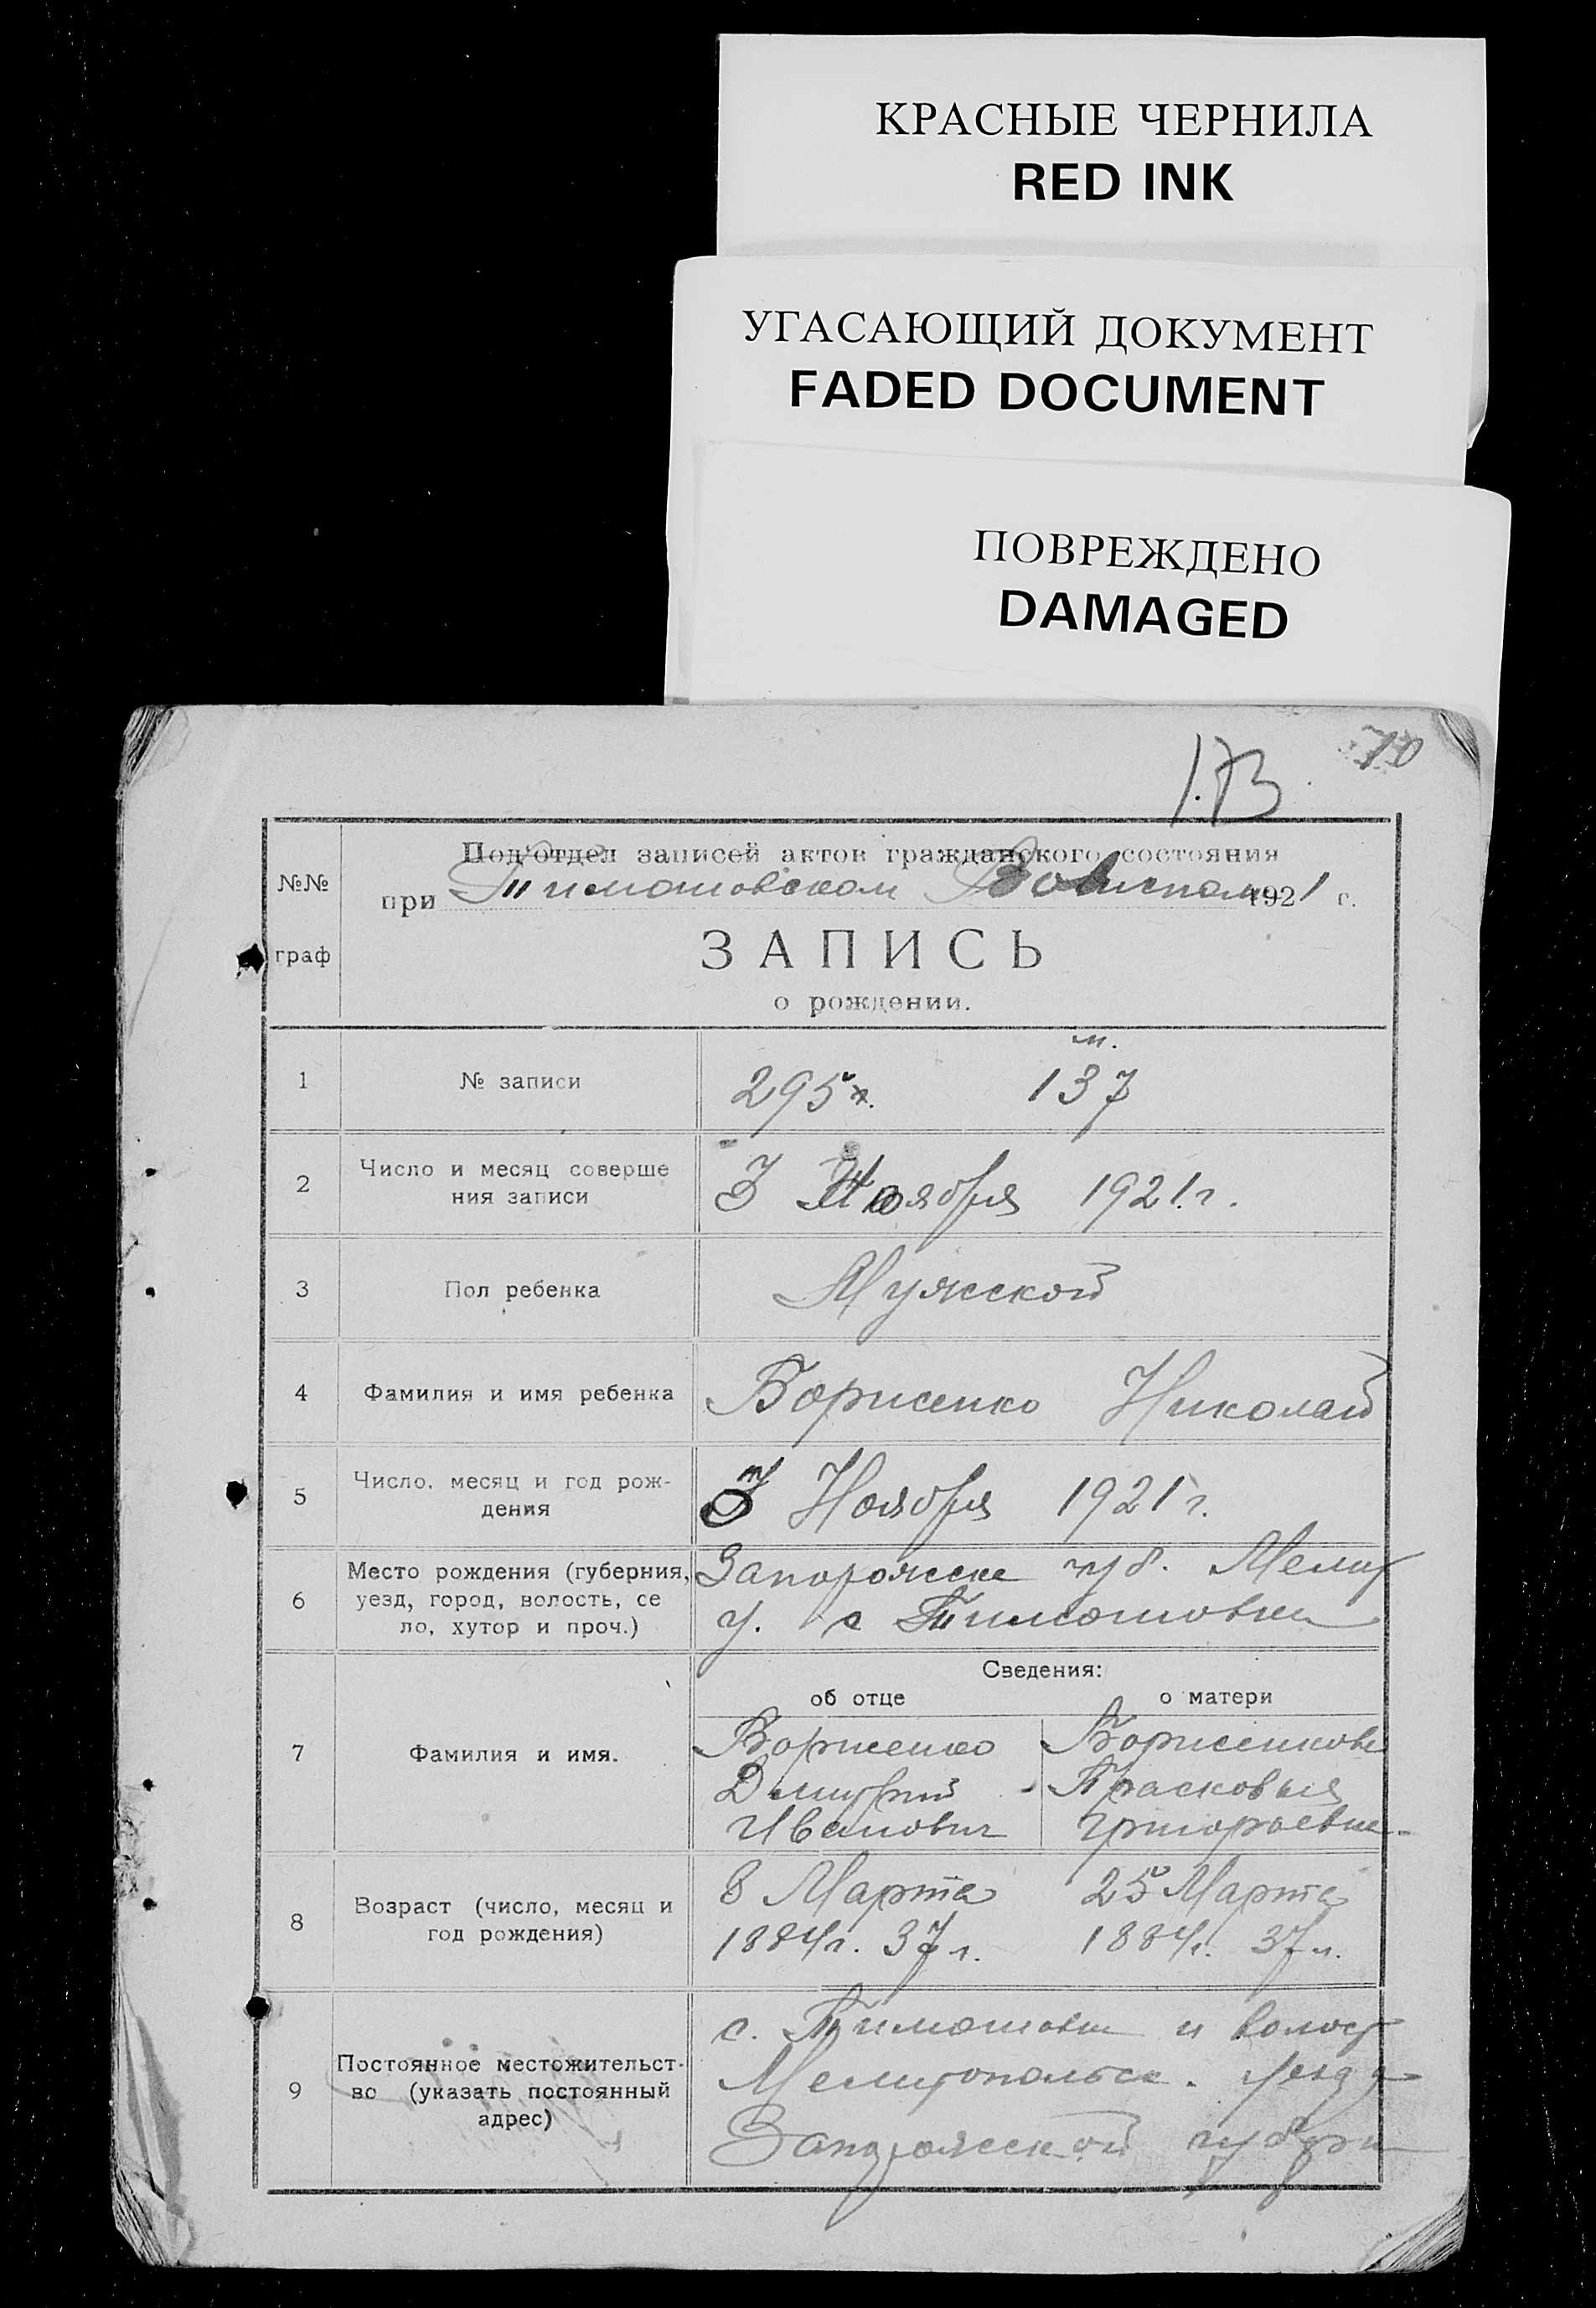 КРАСНЫЕ ЧЕРНИЛА
RED INK
УГАСАЮЩИЙ ДОКУМЕНТ
FADED DOCUMENT
ПОВРЕЖДЕНО
DAMAGED
70
№№
граф
Под'отдел записей актов гражданского состояния
при Тимошовском 1921 г.
ЗАПИСЬ
о рождении.
м.
1 № записи 295 137
2 Число и месяц соверше
ния записи
3 Ноября 1921 г.
3 Пол ребенка Мужской
4 Фамилия и имя ребенка Борисенко Николай
5 Число, месяц и год рож-
дения
3 Ноября 1921 г.
6 Место рождения (губерния,
уезд, город, волость, се
ло, хутор и проч.)
Запорожск губ. Мелит
у. с Тимошовки
Сведения:
об отце о матери
7 Фамилия и имя.
Борисенко
Дмитрий
Иванович
Борисенкова
Прасковья
Григорьевна
8 Возраст (число, месяц и
год рождения)
8 Марта
1884 г. 37 л.
25 Марта
1884 г. 37 л.
9 Постоянное местожительст-
во (указать постоянный
адрес)
с. Тимошовки и волост
Мелитопольск. уезда
Запорожской губерн